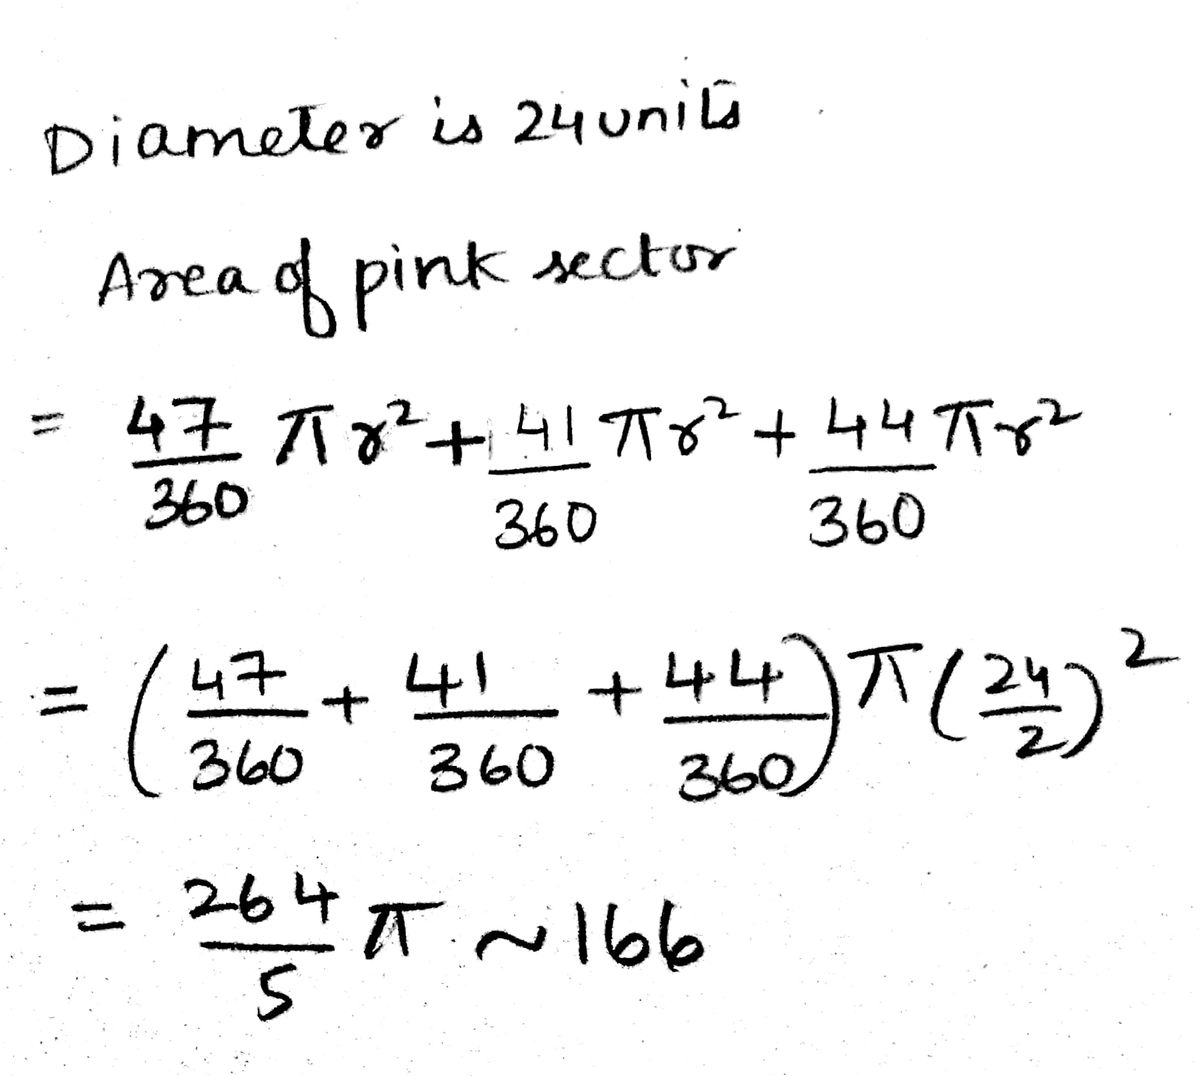 Diameter is 24 units
Area of pink sector
= 47/360 πr² + 41/360 πr² + 44/360 πr²
= (47/360 + 41/360 + 44/360) π (24/2)²
= 264/5 π ~ 166